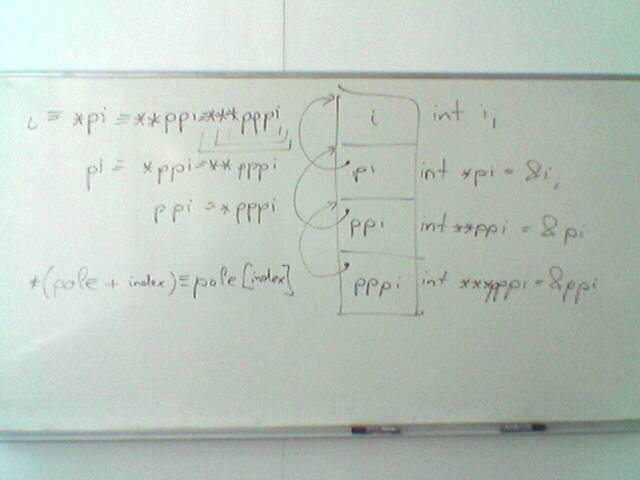 i ≡ *pi ≡ **ppi ≡ ***pppi
pi ≡ *ppi ≡ **pppi
ppi ≡ *pppi
*(pole + index) ≡ pole[index]
i int i;
pi int *pi = &i;
ppi int **ppi = &pi
pppi int ***pppi = &ppi